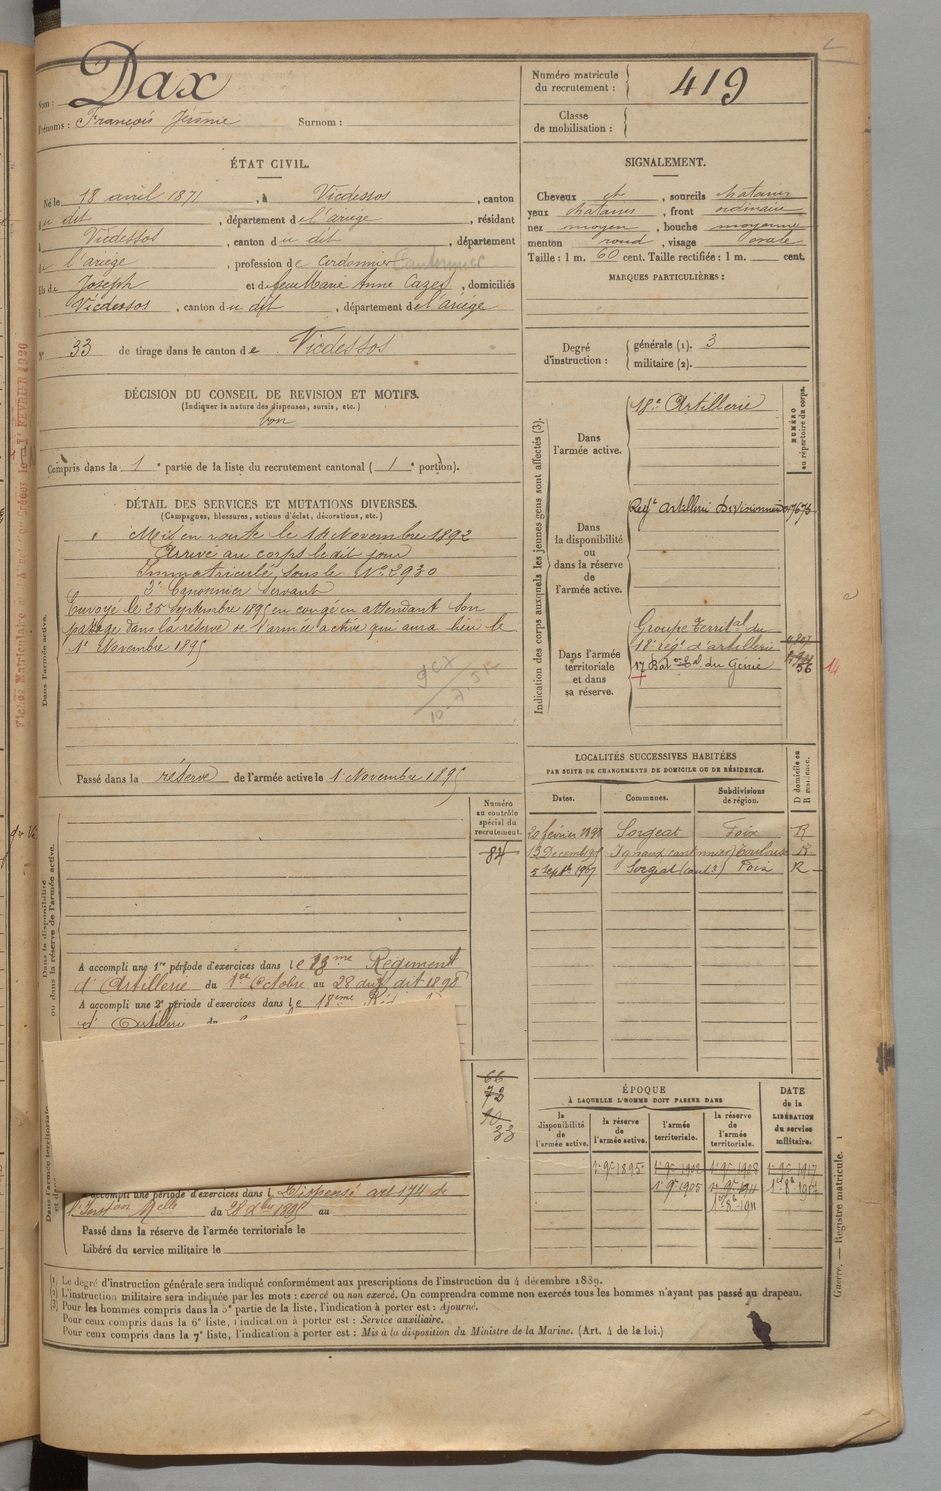 Nom : Dax
Prénoms : François Jérôme Surnom :
Numéro matricule du recrutement : 419
Classe de mobilisation :
ÉTAT CIVIL.
Né le 18 avril 1871, à Vicdessos, canton
du dit, département de l'ariège, résidant
à Vicdessos, canton du dit, département
de l'ariège, profession de Cordonnier Cantonnier
fils de Joseph et de feue Marie Anne Cazes, domiciliés
à Vicdessos, canton du dit, département de l'ariège
N° 33 de tirage dans le canton de Vicdessos
SIGNALEMENT.
Cheveux et, sourcils chatains
yeux chatains, front ordinaire
nez moyen, bouche moyenne
menton rond, visage ovale
Taille : 1 m. 60 cent. Taille rectifiée : 1 m. cent.
MARQUES PARTICULIÈRES :
Degré d'instruction : générale (1). 3
militaire (2).
DÉCISION DU CONSEIL DE REVISION ET MOTIFS.
(Indiquer la nature des dispenses, sursis, etc.)
bon
Compris dans la 1e partie de la liste du recrutement cantonal (1e portion).
DÉTAIL DES SERVICES ET MUTATIONS DIVERSES.
(Campagnes, blessures, actions d'éclat, décorations, etc.)
Dans l'armée active.
Mis en route le 14 Novembre 1892
Arrivé au corps le dit jour
Immatriculé sous le N° 2930
2e Canonnier Servant
Envoyé le 25 Septembre 1895 en congé en attendant son
passage dans la réserve de l'armée active qui aura lieu le
1er Novembre 1895
Passé dans la réserve de l'armée active le 1 Novembre 1895
Indication des corps auxquels les jeunes gens sont affectés (3).
NUMÉRO au répertoire du corps.
Dans l'armée active.
18e Artillerie
Dans la disponibilité ou dans la réserve de l'armée active.
Regt artillerie Divisionnaire
Dans l'armée territoriale et dans sa réserve.
Groupe territal du
18e régt d'artillerie
17 Bat on tal du Génie 56 14
LOCALITÉS SUCCESSIVES HABITÉES
PAR SUITE DE CHANGEMENTS DE DOMICILE OU DE RÉSIDENCE.
Dates. Communes. Subdivisions de région. D domicile ou R résidence.
20 février 1898 Sorgeat Foix R
13 Décembre Ignaux (cantonnier) Toulouse R
5 Septbre 1907 Sorgeat (cant.) Foix R
Numéro au contrôle spécial du recrutement.
84
Dans la disponibilité ou dans la réserve de l'armée active.
A accompli une 1re période d'exercices dans le 18me Régiment
d'Artillerie du 1er Octobre au 28 dudit 1898
A accompli une 2e période d'exercices dans le 18ème
d'Artillerie du
66
72
10
33
Dans l'armée territoriale
A accompli une période d'exercices dans l Dispensé art 174 de
du au
Passé dans la réserve de l'armée territoriale le
Libéré du service militaire le
ÉPOQUE
À LAQUELLE L'HOMME DOIT PASSER DANS
la disponibilité de l'armée active. la réserve de l'armée active. l'armée territoriale. la réserve de l'armée territoriale. DATE de la LIBÉRATION du service militaire.
1er 9bre 1895 1er 9bre 1908 1er 9bre 1908 1er 9bre 1917
1er 9bre 1905 1er 9bre 1911
1er 8bre 1911
(1) Le degré d'instruction générale sera indiqué conformément aux prescriptions de l'instruction du 4 décembre 1889.
(2) L'instruction militaire sera indiquée par les mots : exercé ou non exercé. On comprendra comme non exercés tous les hommes n'ayant pas passé au drapeau.
(3) Pour les hommes compris dans la 5e partie de la liste, l'indication à porter est : Ajourné.
Pour ceux compris dans la 6e liste, l'indication à porter est : Service auxiliaire.
Pour ceux compris dans la 7e liste, l'indication à porter est : Mis à la disposition du Ministre de la Marine. (Art. 4 de la loi.)
Guerre. — Registre matricule. 1